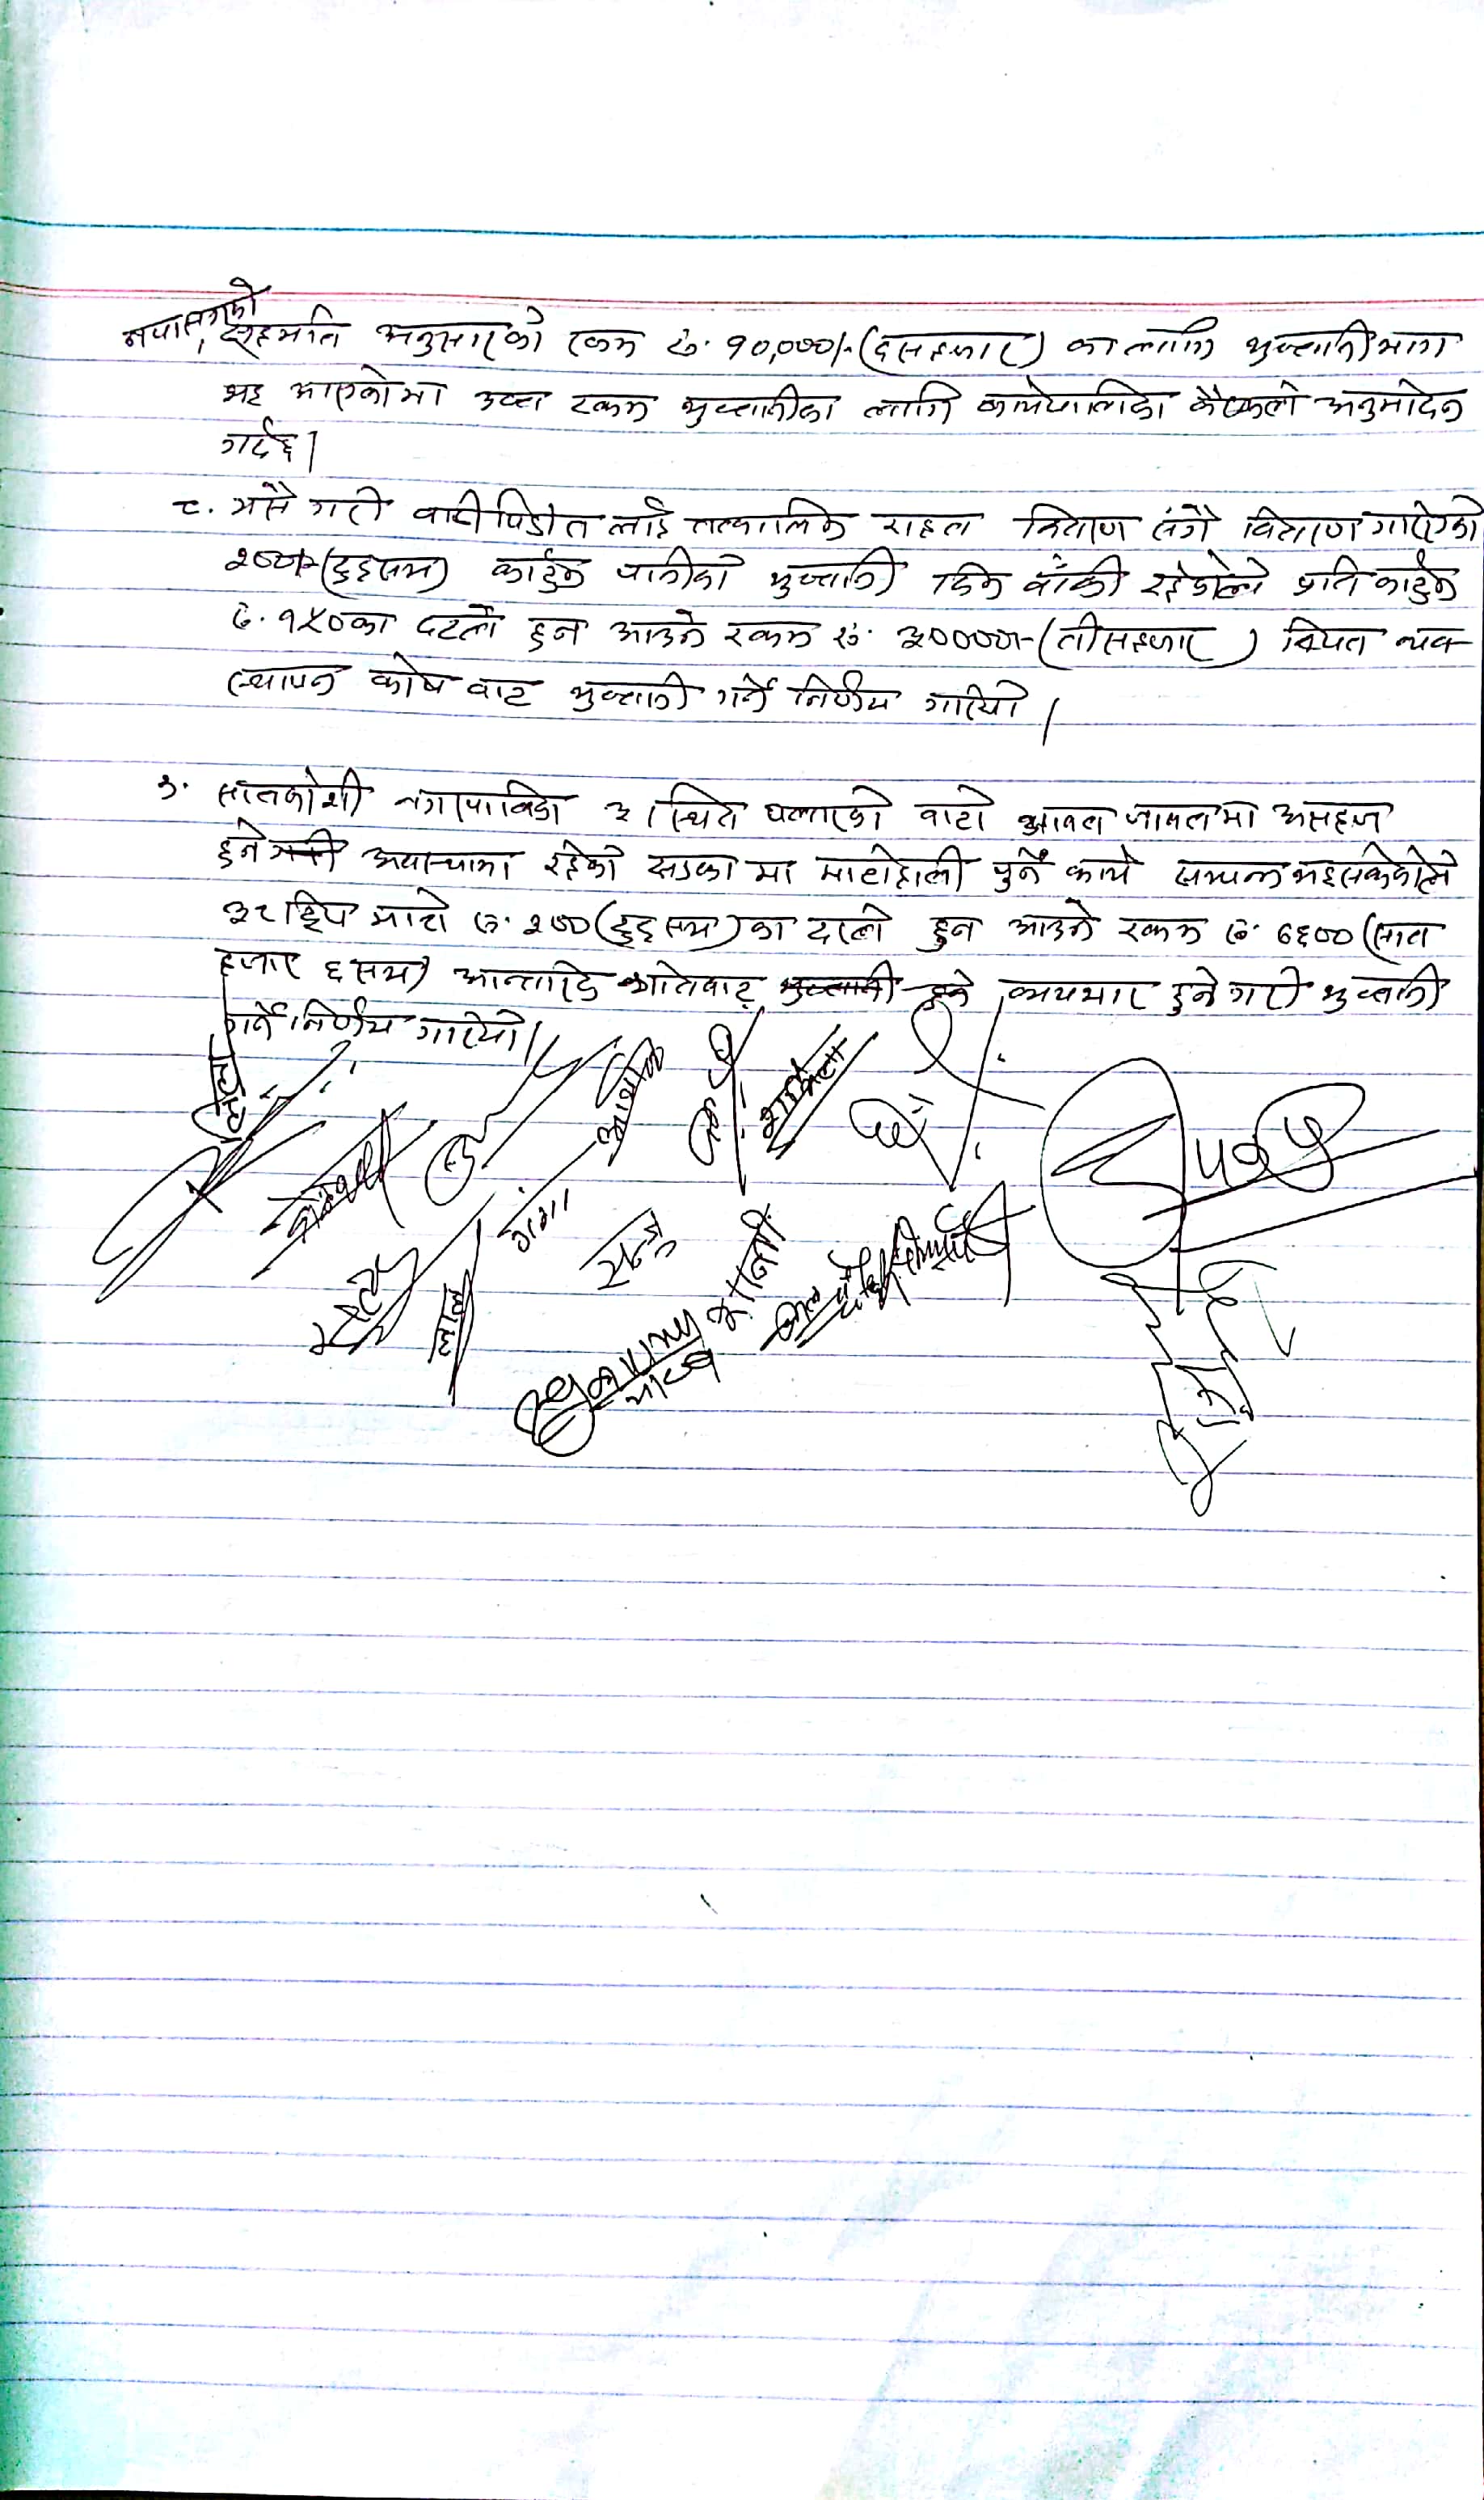 नपासँगको
सहमति अनुसारको रकम रु. १०,०००/-(दसहजार) का लागि भुक्तानी माग
भइ आएकोमा उक्त रकम भुक्तानीका लागि कार्यपालिका बैठकले अनुमोदन
गर्दछ।
८. यसै गरी बाढी पिडीत लाई तत्कालिक राहत वितरण संगै वितरण गरिएको
२००/-(दुइसय) कार्टुन पानीको भुक्तानी दिन बाँकी रहेकोले प्रति कार्टुन
रु. १५०का दरले हुन आउने रकम रु. ३००००/-(तीसहजार) विपत व्यव-
स्थापन कोष बाट भुक्तानी गर्ने निर्णय गरियो।
९. सातकोशी नगरपालिका ३ स्थित घलारको बाटो आवत जावतमा असहज
हुने अवस्थामा रहेको सडकमा माटोहाली पुर्ने कार्य सम्पन्न भइसकेकोले
३८ ट्रिप माटो रु. २००(दुइसय)का दरले हुन आउने रकम रु. ७६०० (सात
हजार ६सय) आन्तरिक श्रोतबाट भुक्तानी हुने व्ययभार हुने गरी भुक्तानी
गर्ने निर्णय गरियो।
शर्मिला
गंगा